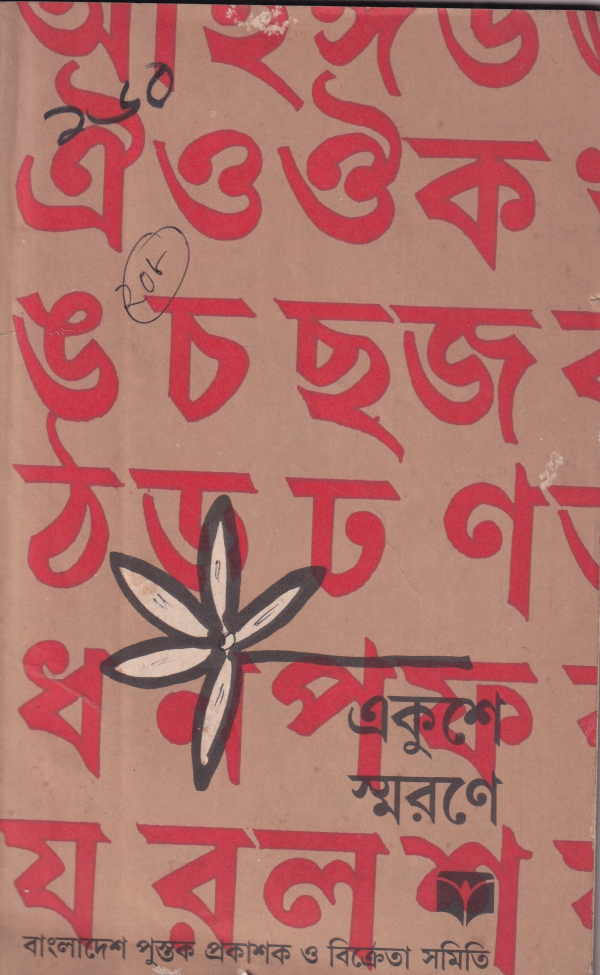 আ ই ঈ উ
২৬০
ঐ ও ঔ ক
২০৮
ঙ চ ছ জ
ঠ ড ঢ ণ
ধ ন প ফ
একুশে
স্মরণে
য র ল শ
বাংলাদেশ পুস্তক প্রকাশক ও বিক্রেতা সমিতি